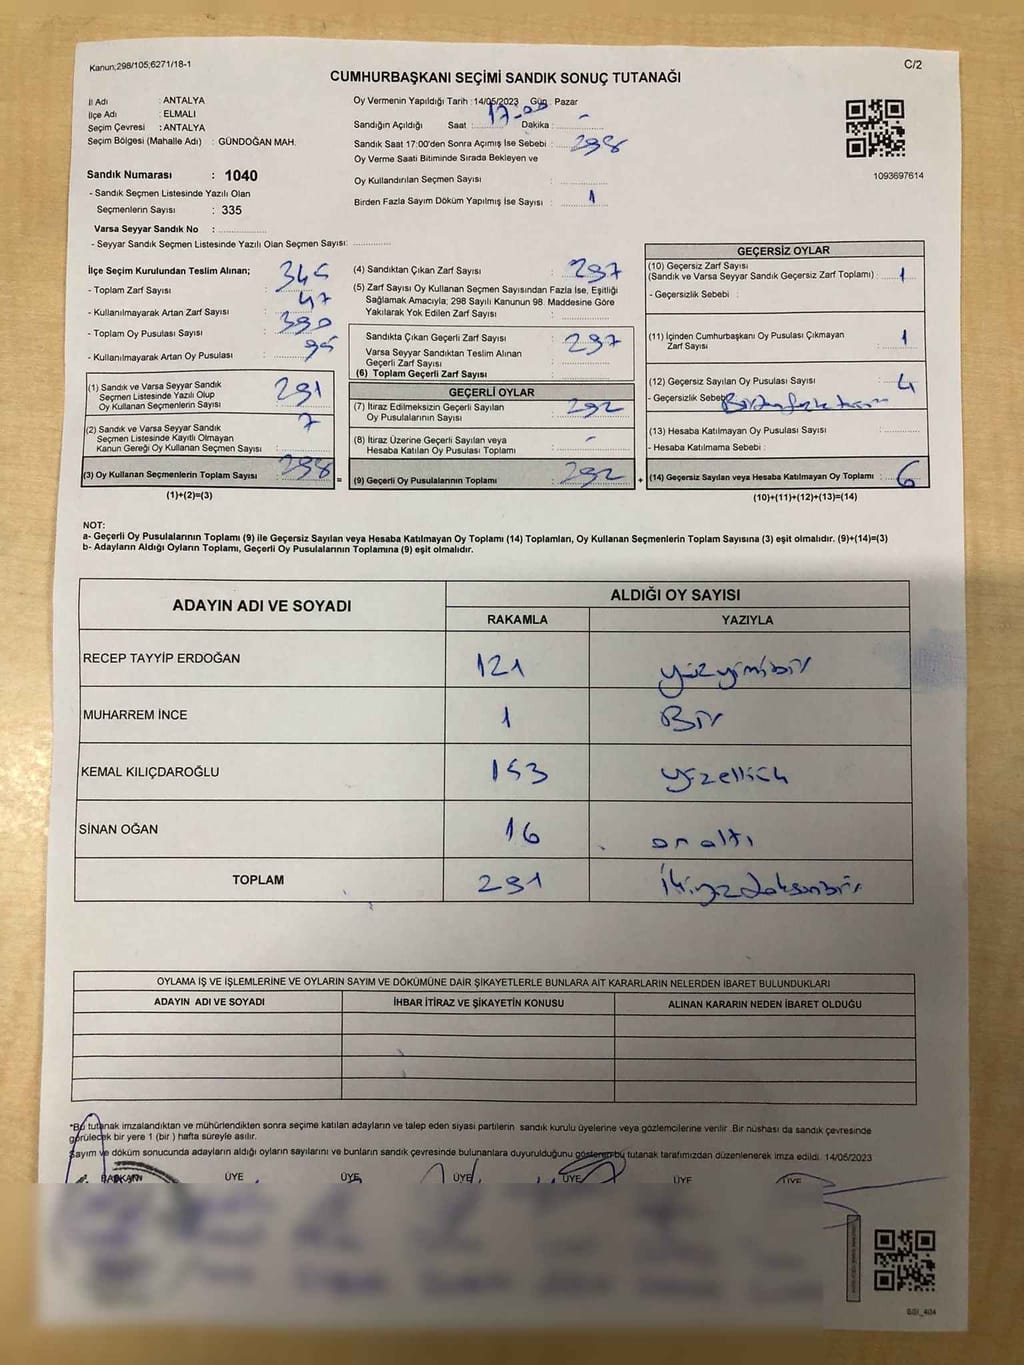 Kanun;298/105;6271/18-1
C/2
CUMHURBAŞKANI SEÇİMİ SANDIK SONUÇ TUTANAĞI
İl Adı : ANTALYA
İlçe Adı : ELMALI
Seçim Çevresi : ANTALYA
Seçim Bölgesi (Mahalle Adı) : GÜNDOĞAN MAH.
Sandık Numarası : 1040
- Sandık Seçmen Listesinde Yazılı Olan
Seçmenlerin Sayısı : 335
Varsa Seyyar Sandık No :
- Seyyar Sandık Seçmen Listesinde Yazılı Olan Seçmen Sayısı:
Oy Vermenin Yapıldığı Tarih : 14/05/2023 Gün : Pazar
Sandığın Açıldığı Saat : 17-00 Dakika : -
Sandık Saat 17:00'den Sonra Açımış İse Sebebi : 298
Oy Verme Saati Bitiminde Sırada Bekleyen ve
Oy Kullandırılan Seçmen Sayısı :
Birden Fazla Sayım Döküm Yapılmış İse Sayısı : 1
1093697614
İlçe Seçim Kurulundan Teslim Alınan;
- Toplam Zarf Sayısı : 345
- Kullanılmayarak Artan Zarf Sayısı : 47
- Toplam Oy Pusulası Sayısı : 390
- Kullanılmayarak Artan Oy Pusulası :
(1) Sandık ve Varsa Seyyar Sandık
Seçmen Listesinde Yazılı Olup
Oy Kullanan Seçmenlerin Sayısı : 291
(2) Sandık ve Varsa Seyyar Sandık
Seçmen Listesinde Kayıtlı Olmayan
Kanun Gereği Oy Kullanan Seçmen Sayısı : 7
(3) Oy Kullanan Seçmenlerin Toplam Sayısı : 298
(1)+(2)=(3)
(4) Sandıktan Çıkan Zarf Sayısı : 297
(5) Zarf Sayısı Oy Kullanan Seçmen Sayısından Fazla İse, Eşitliği
Sağlamak Amacıyla; 298 Sayılı Kanunun 98. Maddesine Göre
Yakılarak Yok Edilen Zarf Sayısı :
Sandıkta Çıkan Geçerli Zarf Sayısı : 297
Varsa Seyyar Sandıktan Teslim Alınan
Geçerli Zarf Sayısı :
(6) Toplam Geçerli Zarf Sayısı :
GEÇERLİ OYLAR
(7) İtiraz Edilmeksizin Geçerli Sayılan
Oy Pusulalarının Sayısı : 292
(8) İtiraz Üzerine Geçerli Sayılan veya
Hesaba Katılan Oy Pusulası Toplamı : -
(9) Geçerli Oy Pusulalarının Toplamı : 292
=
+
GEÇERSİZ OYLAR
(10) Geçersiz Zarf Sayısı
(Sandık ve Varsa Seyyar Sandık Geçersiz Zarf Toplamı) : 1
- Geçersizlik Sebebi :
(11) İçinden Cumhurbaşkanı Oy Pusulası Çıkmayan
Zarf Sayısı : 1
(12) Geçersiz Sayılan Oy Pusulası Sayısı : 4
- Geçersizlik Sebebi
(13) Hesaba Katılmayan Oy Pusulası Sayısı :
- Hesaba Katılmama Sebebi :
(14) Geçersiz Sayılan veya Hesaba Katılmayan Oy Toplamı : 6
(10)+(11)+(12)+(13)=(14)
NOT:
a- Geçerli Oy Pusulalarının Toplamı (9) ile Geçersiz Sayılan veya Hesaba Katılmayan Oy Toplamı (14) Toplamları, Oy Kullanan Seçmenlerin Toplam Sayısına (3) eşit olmalıdır. (9)+(14)=(3)
b- Adayların Aldığı Oyların Toplamı, Geçerli Oy Pusulalarının Toplamına (9) eşit olmalıdır.
ADAYIN ADI VE SOYADI
ALDIĞI OY SAYISI
RAKAMLA YAZIYLA
RECEP TAYYİP ERDOĞAN 121 yüzyimibir
MUHARREM İNCE 1 Bir
KEMAL KILIÇDAROĞLU 153 yüzellüç
SİNAN OĞAN 16 on altı
TOPLAM 291 İkiyüzdoksanbir
OYLAMA İŞ VE İŞLEMLERİNE VE OYLARIN SAYIM VE DÖKÜMÜNE DAİR ŞİKAYETLERLE BUNLARA AİT KARARLARIN NELERDEN İBARET BULUNDUKLARI
ADAYIN ADI VE SOYADI İHBAR İTİRAZ VE ŞİKAYETİN KONUSU ALINAN KARARIN NEDEN İBARET OLDUĞU
*Bu tutanak imzalandıktan ve mühürlendikten sonra seçime katılan adayların ve talep eden siyasi partilerin sandık kurulu üyelerine veya gözlemcilerine verilir .Bir nüshası da sandık çevresinde
görülecek bir yere 1 (bir ) hafta süreyle asılır.
Sayım ve döküm sonucunda adayların aldığı oyların sayılarını ve bunların sandık çevresinde bulunanlara duyurulduğunu gösteren bu tutanak tarafımızdan düzenlenerek imza edildi. 14/05/2023
BAŞKAN ÜYE ÜYE ÜYE ÜYE ÜYE ÜYE